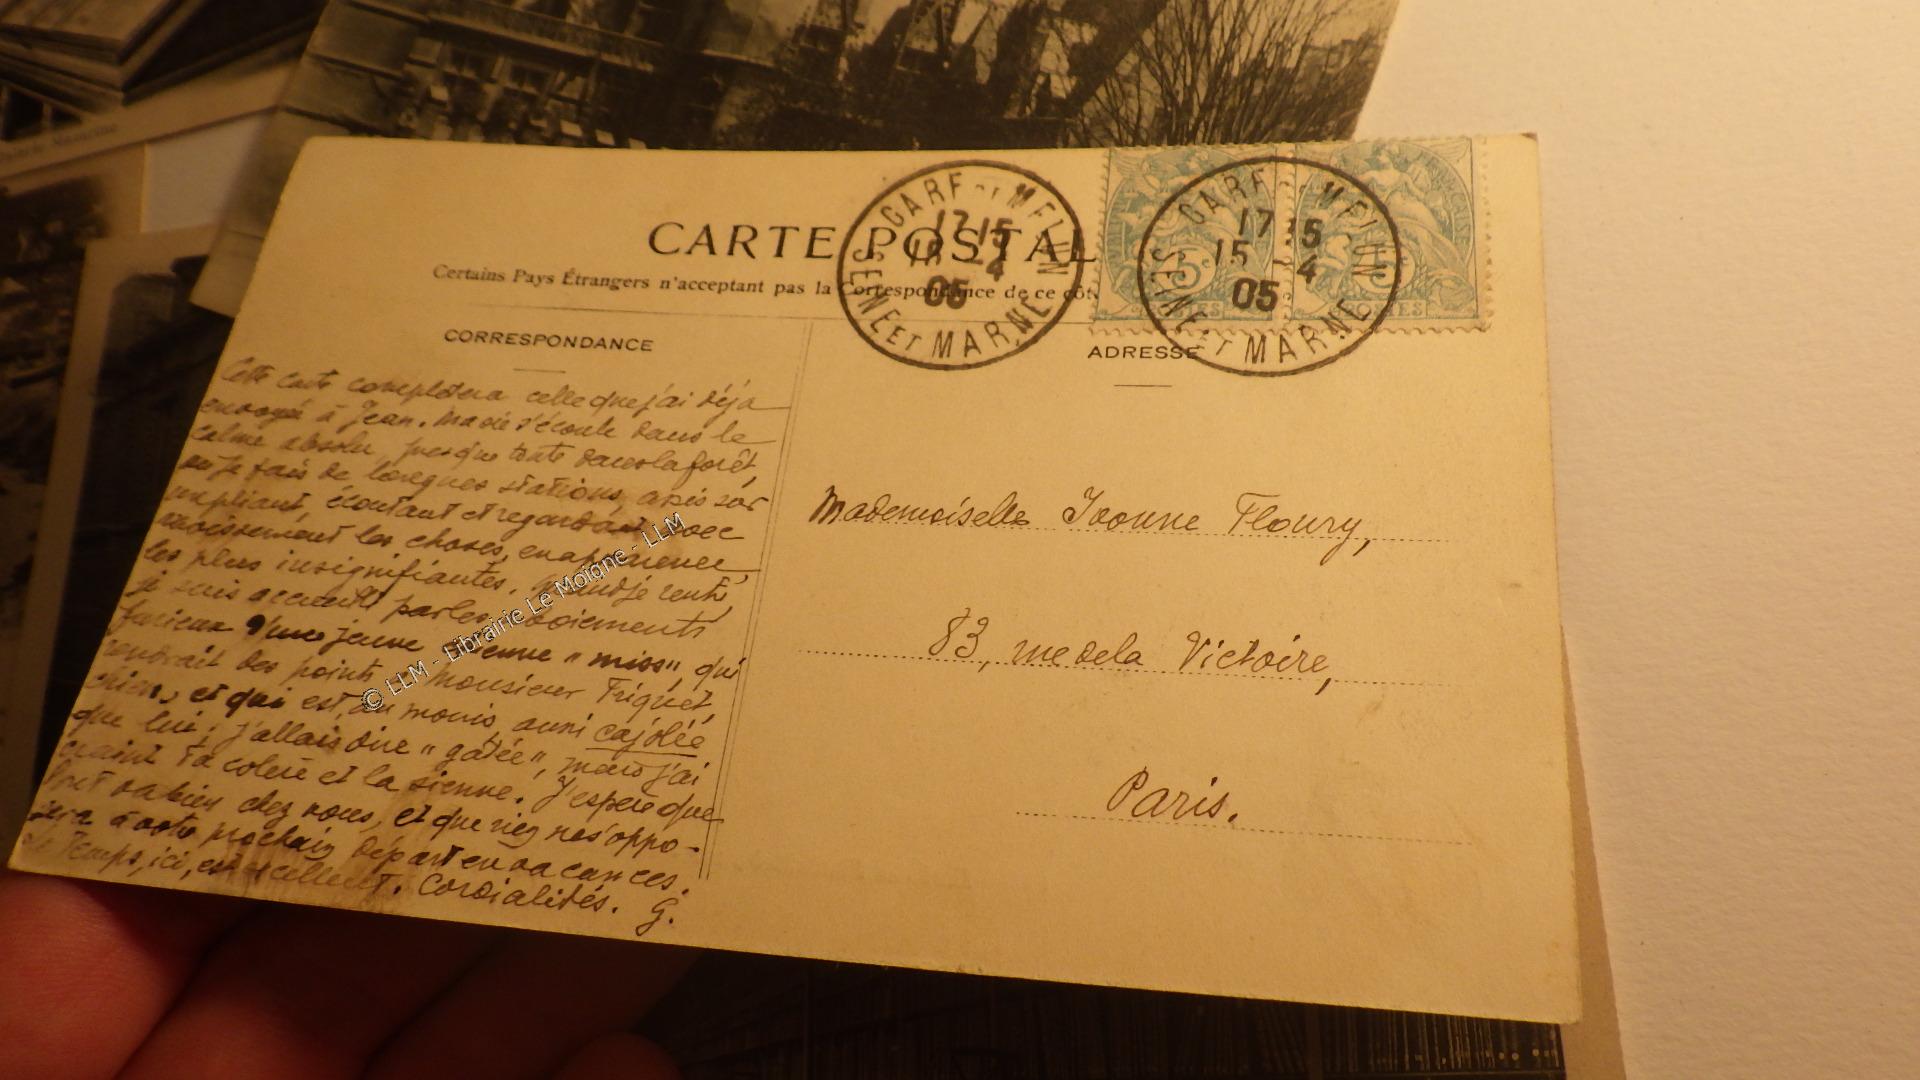 CARTE POSTAL
Certains Pays Étrangers n'acceptent pas la Correspondance de ce côt
CORRESPONDANCE
ADRESSE
GARE DE MELUN
17 15
15 - 4
05
SEINE ET MARNE
GARE DE MELUN
17 15
15 4
05
SEINE ET MARNE
5c
5c
Cette carte complétera celle que j'ai déjà
envoyée à Jean. Ma vie s'écoule dans le
calme absolu, presque toute dans la forêt,
où je fais de longues stations, assis sur
un pliant, écoutant et regardant avec
les choses, en apparence,
les plus insignifiantes. Quand je rentre,
je suis accueilli par les aboiements
furieux d'une jeune chienne "miss", qui
rendrait des points à Monsieur Friquet,
chien, et qui est, au moins, aussi cajolée
que lui; j'allais dire "gâtée", mais j'ai
craint ta colère et la sienne. J'espère que
tout va bien chez vous, et que rien ne s'oppo-
sera à votre prochain départ en vacances.
Le temps, ici, est excellent. Cordialités. G.
Mademoiselle Ivonne Floury,
83, rue de la Victoire,
Paris.
© LLM - Librairie Le Moigne - LLM